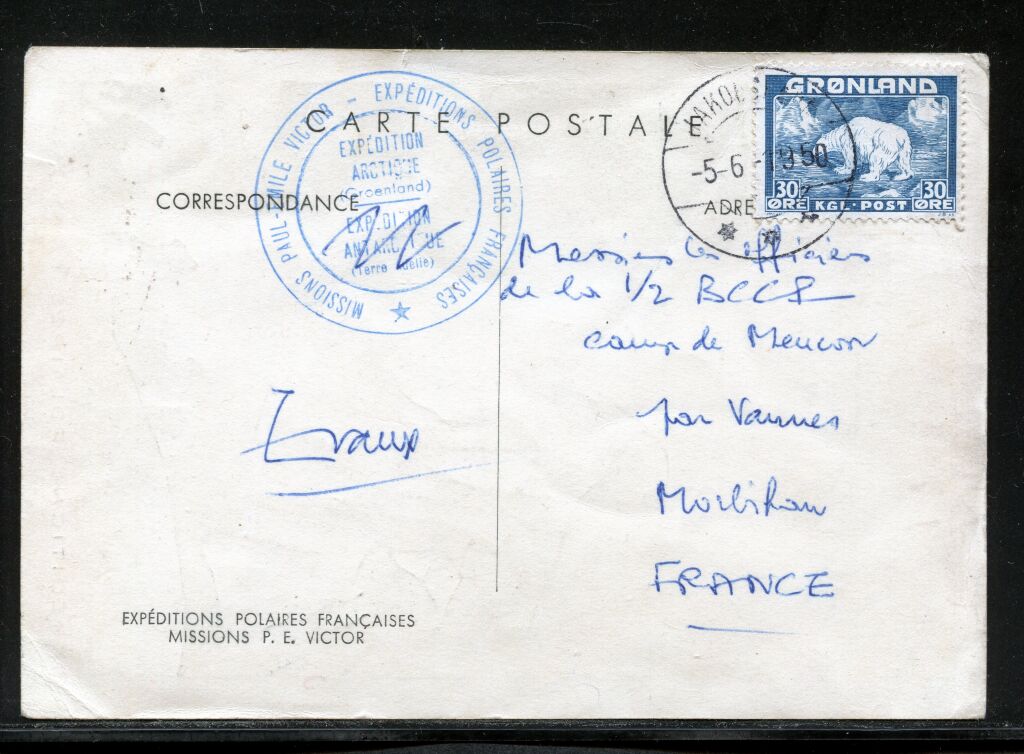 CARTE POSTALE
CORRESPONDANCE
ADRE
MISSIONS PAUL-EMILE VICTOR - EXPÉDITIONS POLAIRES FRANÇAISES
EXPÉDITION
ARCTIQUE
(Groenland)
EXPÉDITION
ANTARCTIQUE
(Terre Adélie)
-5-6-1950
GRØNLAND
30 ØRE
KGL·POST
30 ØRE
Messieurs les officiers
de la 1/2 BCCP
camp de Meucon
par Vannes
Morbihan
FRANCE
EXPÉDITIONS POLAIRES FRANÇAISES
MISSIONS P. E. VICTOR